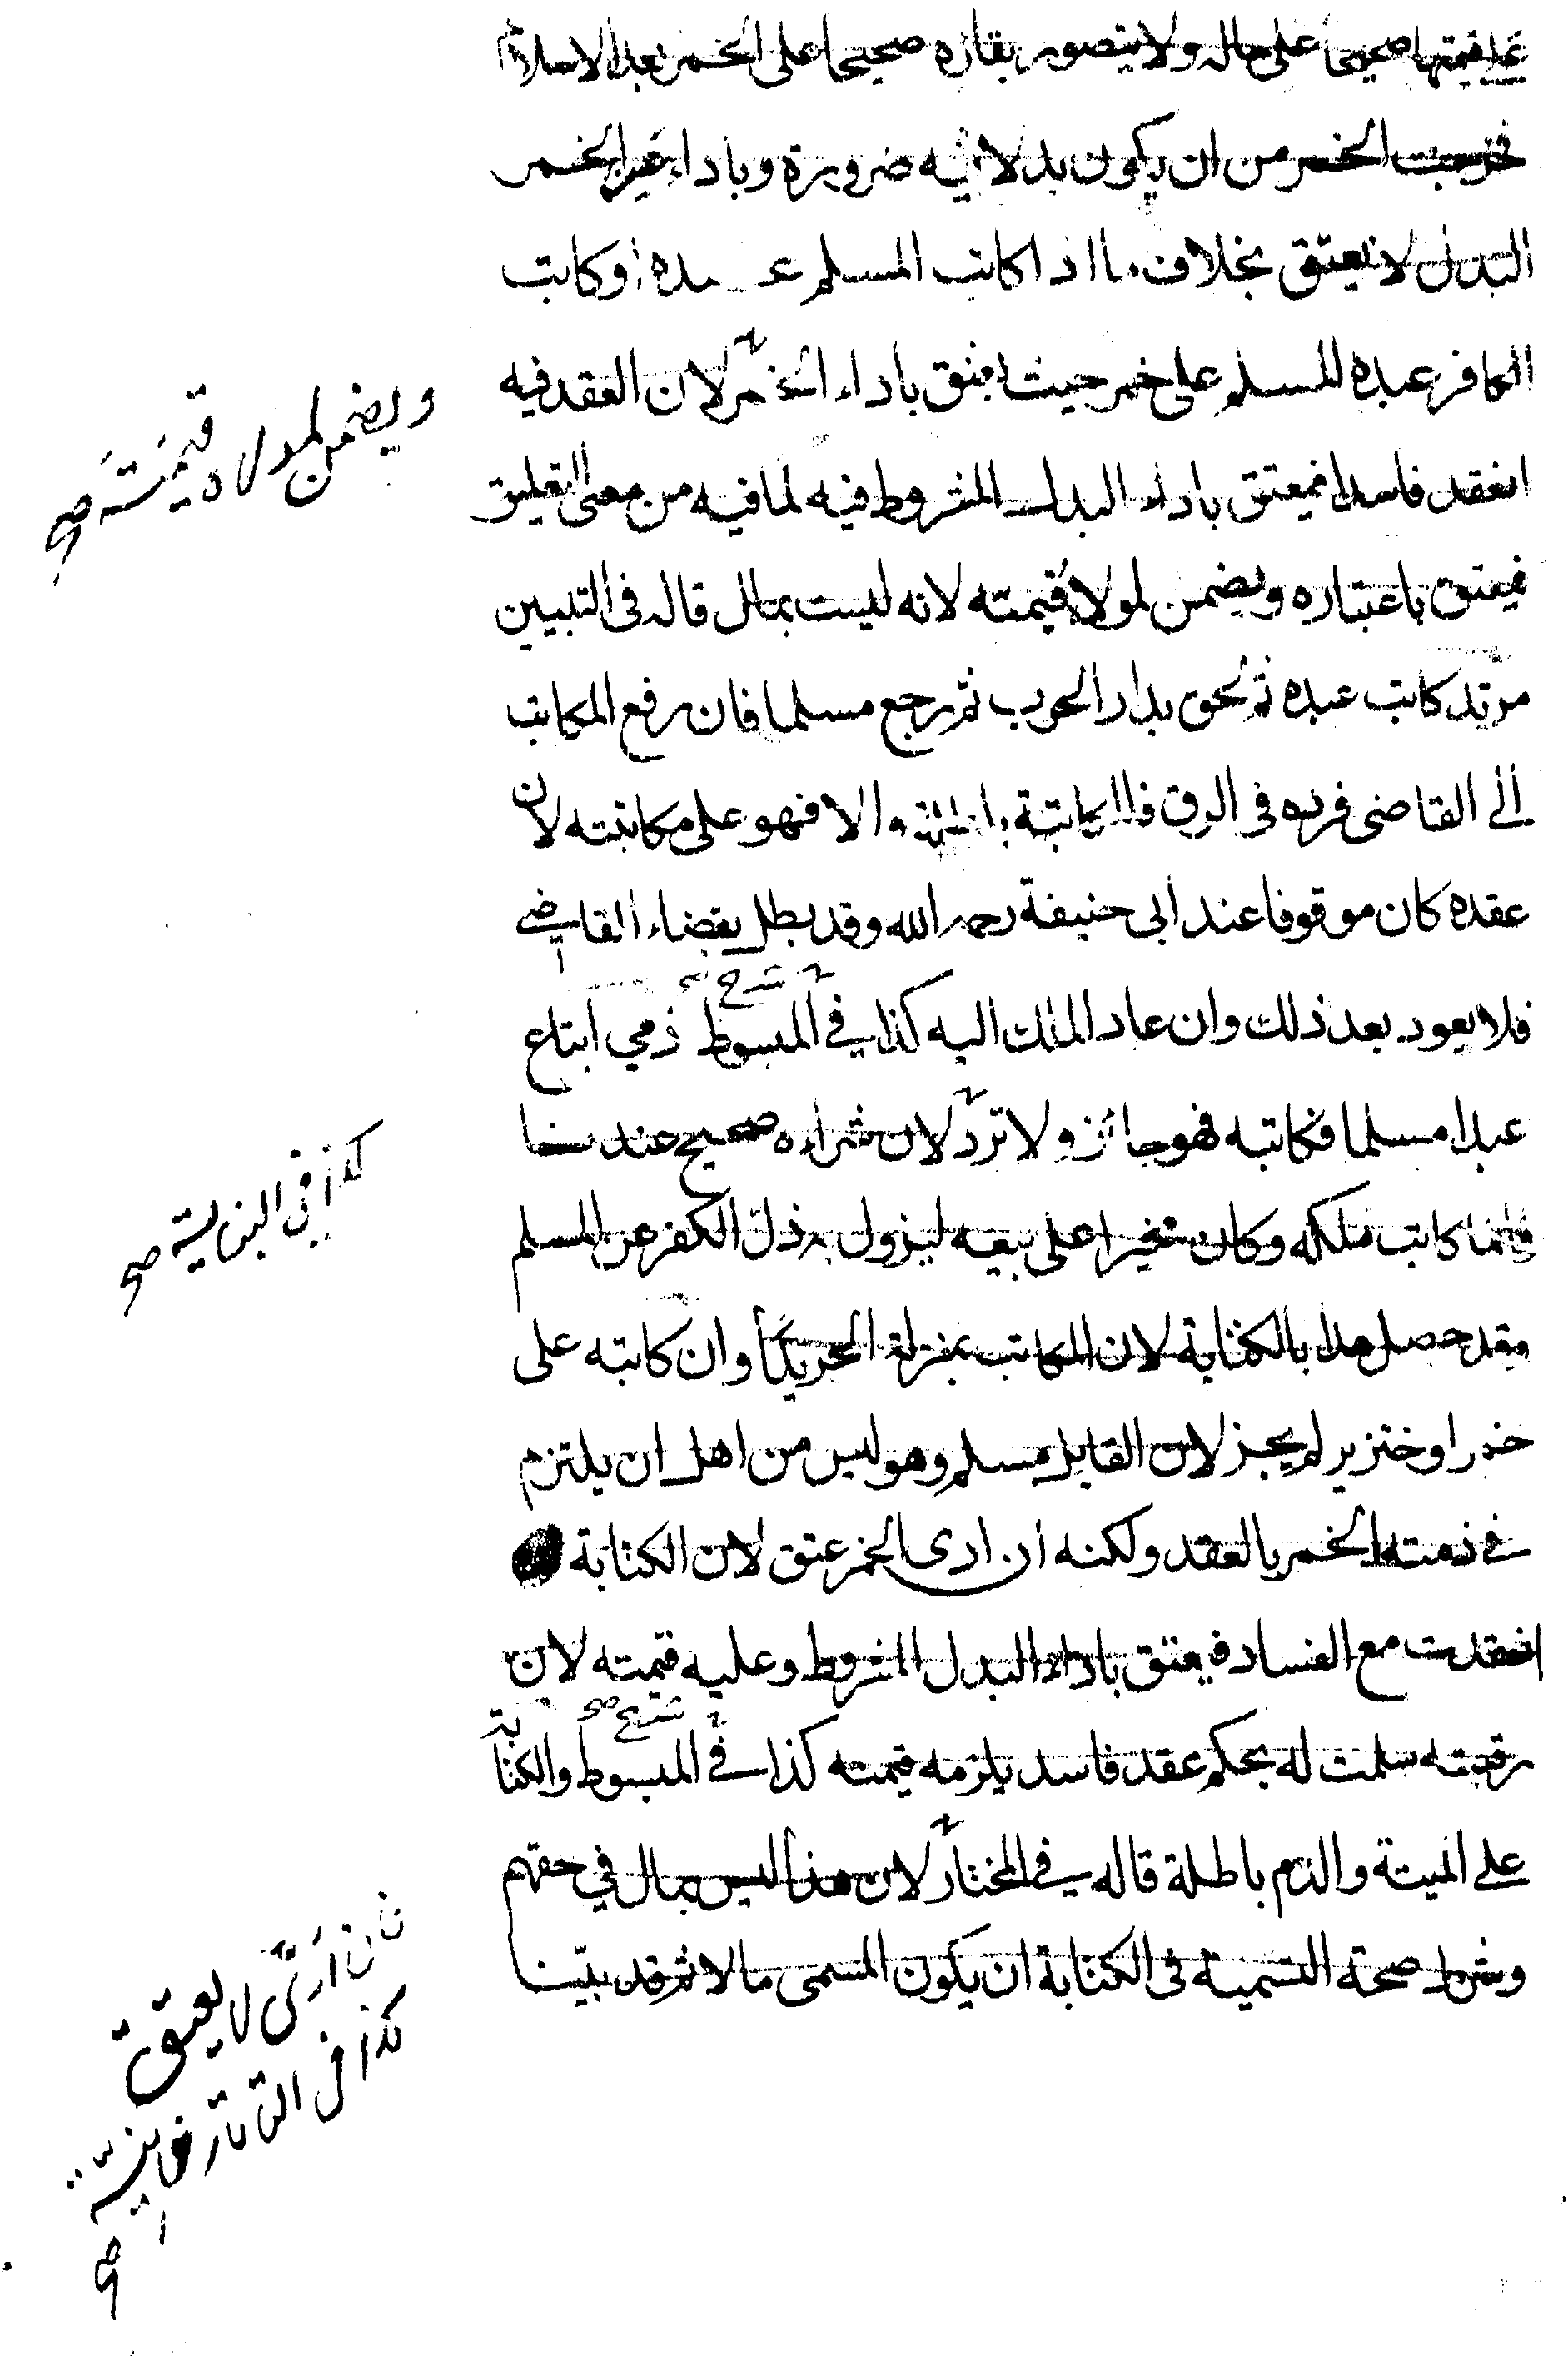 على قيمتها صحيحا على حاله ولا يتصور بقاؤه صحيحا على الخمر بعد الاسلام
فخرجت الخمر من ان يكون بدلا فيه ضرورة وباداء غير الخمر
البدل لا يعتق بخلاف ما اذا كاتب المسلم عبده او كاتب
الكافر عبده المسلم على خمر حيث يعتق باداء الخمر لان العقد فيه
ويضمن لمولاه قيمته صح
انعقد فاسدا فيعتق باداء البدل المشروط فيه لما فيه من معنى التعليق
فيعتق باعتباره ويضمن لمولاه قيمته لانه ليست بمال قاله فى التبيين
مرتد كاتب عبده ثم لحق بدار الحرب ثم رجع مسلما فان رفع المكاتب
الى القاضى فرده فى الرق فالمكاتبة باطلة والا فهو على مكاتبته لان
عقده كان موقوفا عند ابى حنيفة رحمه الله وقد بطل بقضاء القاضي
فلا يعود بعد ذلك وان عاد الملك اليه كذا في شرح المبسوط ذمي ابتاع
عبدا مسلما فكاتبه فهو جائز ولا ترد لان شراءه صحيح عندنا
كذا في البزازية صح
فانما كاتب ملكه وكان مخيرا على بيعه ليزول به ذل الكفر عن المسلم
وقد حصل هذا بالكتابة لان المكاتب بمنزلة الحر يدا وان كاتبه على
خمر او خنزير لم يجز لان القابل مسلم وهو ليس من اهل ان يلتزم
في ذمته الخمر بالعقد ولكنه ان ادى الخمر عتق لان الكتابة
انعقدت مع الفساد فيعتق باداء البدل المشروط وعليه قيمته لان
رقبته سلمت له بحكم عقد فاسد يلزمه قيمته كذا في شرح المبسوط والكتابة
على الميتة والدم باطلة قاله في المختار لان هذا ليس بمال في حقهم
فان ادى لا يعتق
كذا فى التاتارخانية
صح
وشرط صحة التسمية فى الكتابة ان يكون المسمى مالا ثم قد بينا